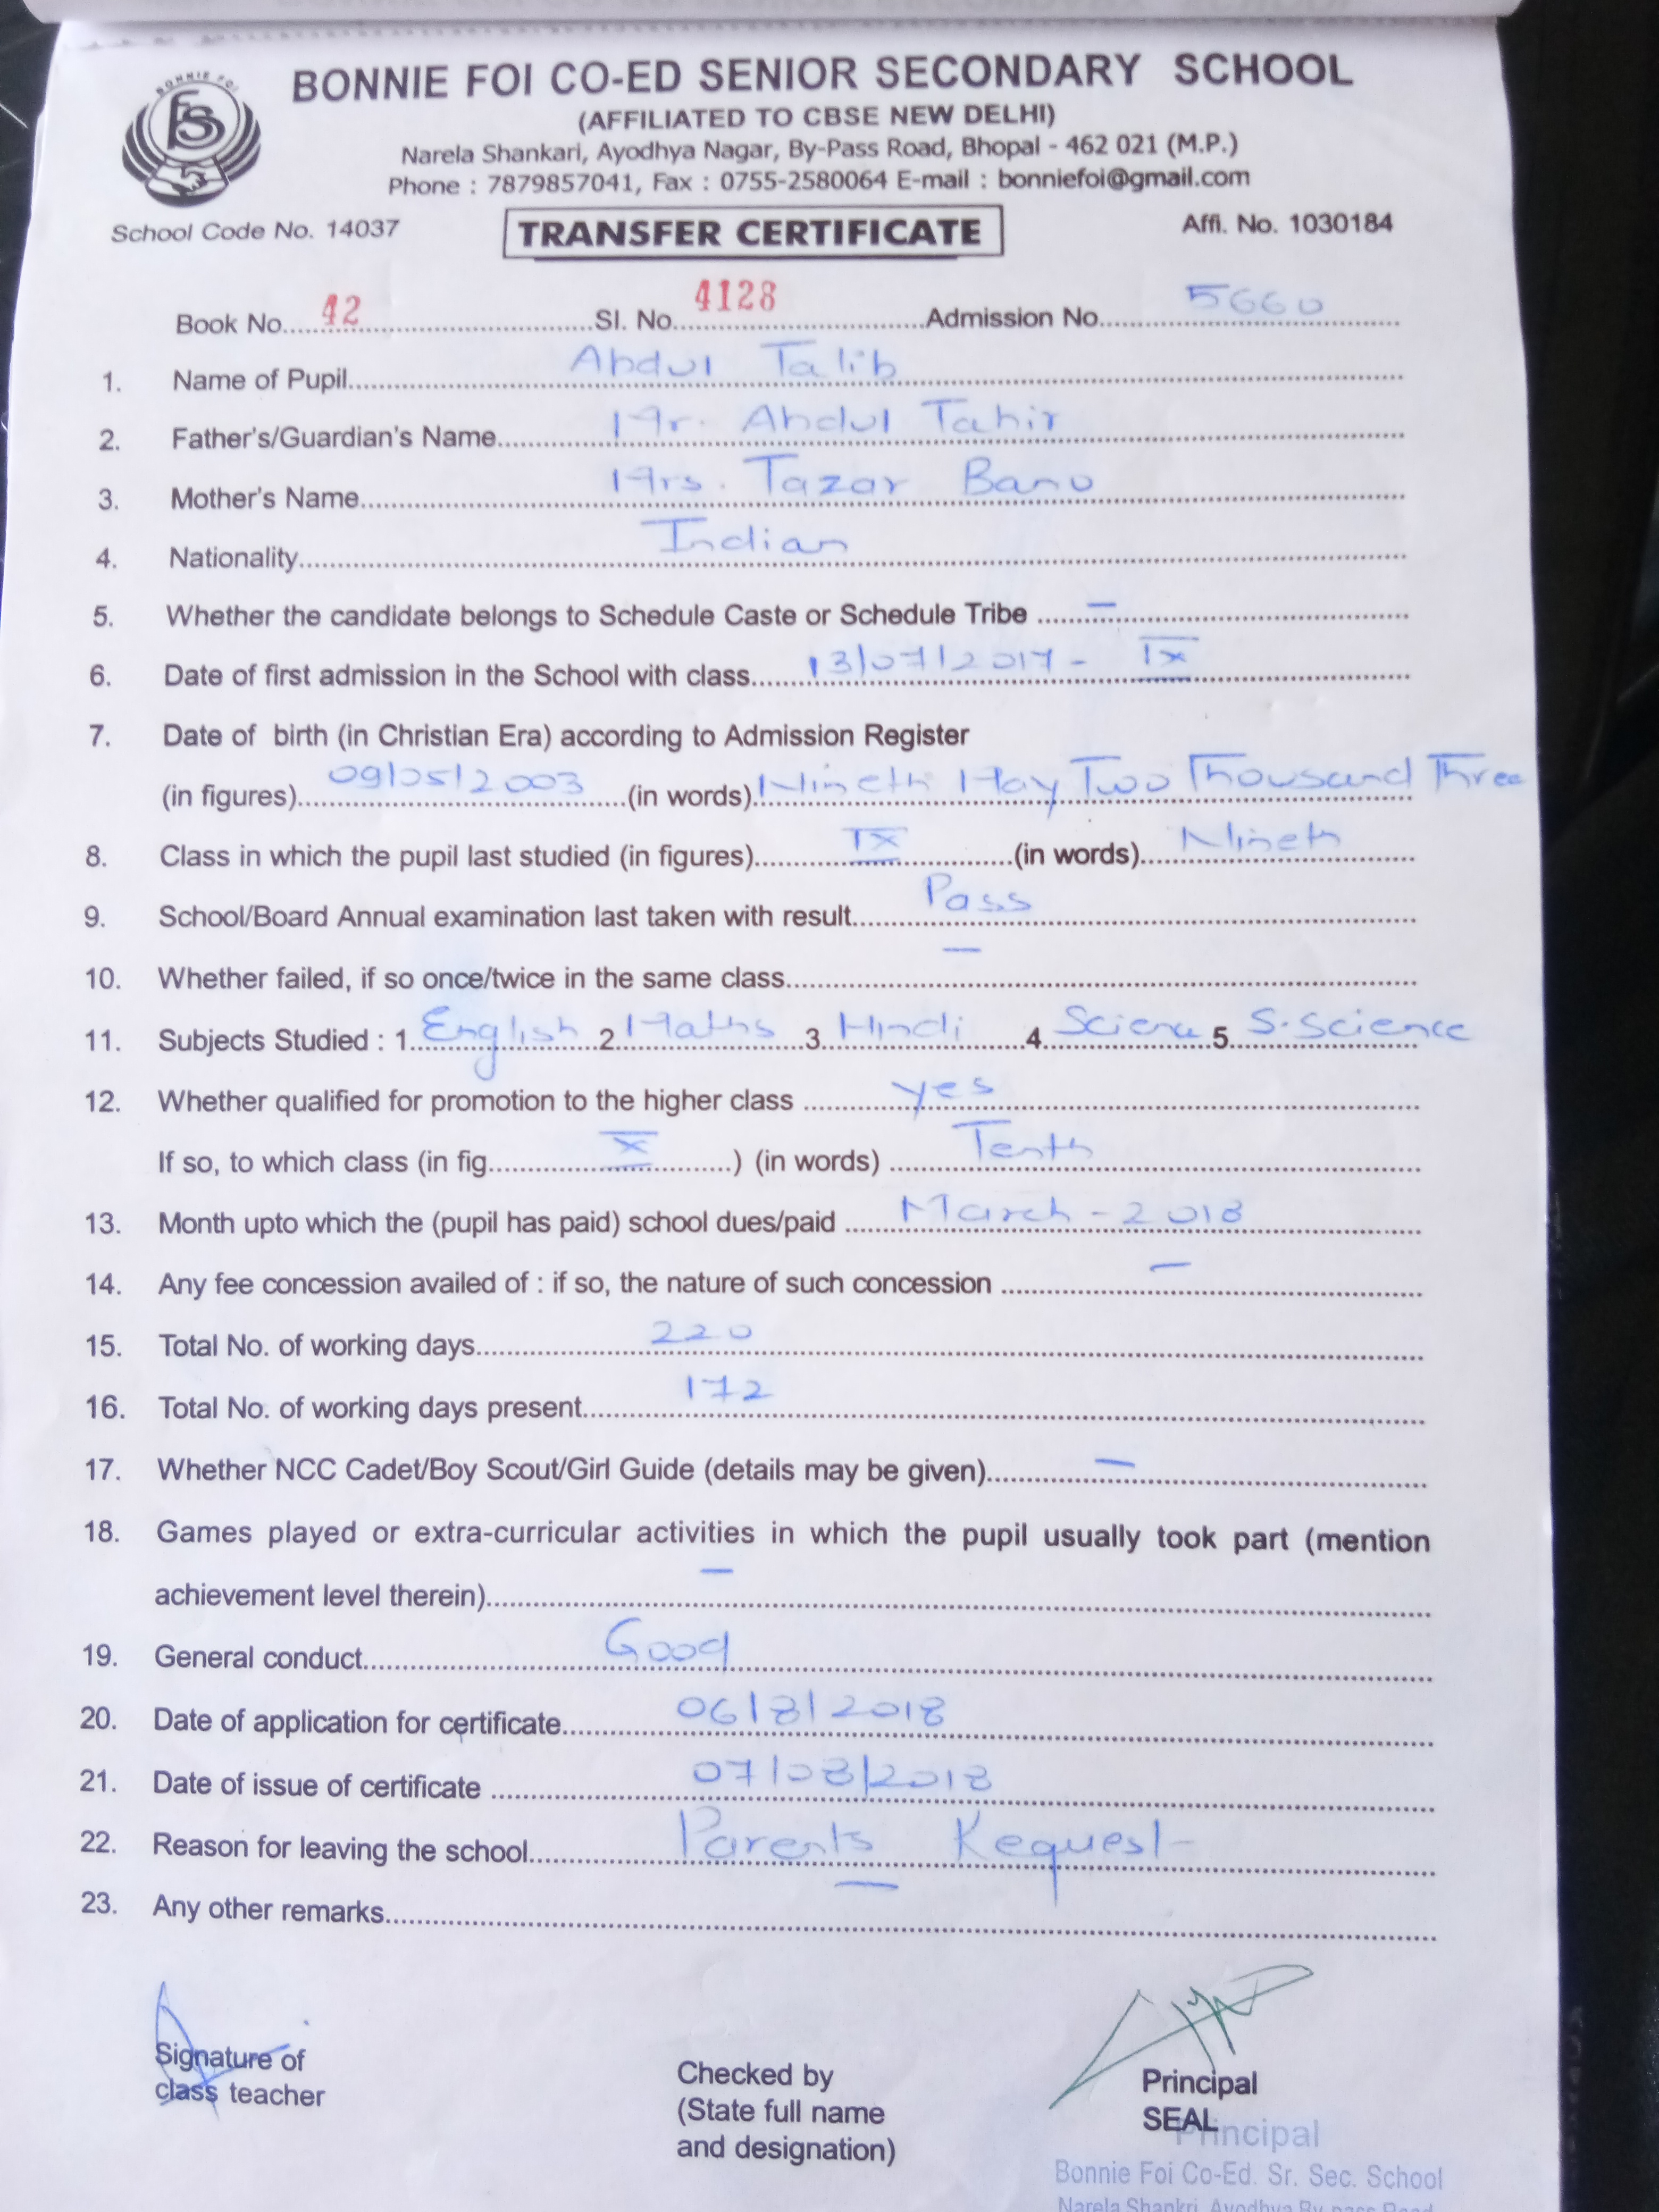 BONNIE FOI
FS
BONNIE FOI CO-ED SENIOR SECONDARY SCHOOL
(AFFILIATED TO CBSE NEW DELHI)
Narela Shankari, Ayodhya Nagar, By-Pass Road, Bhopal - 462 021 (M.P.)
Phone : 7879857041, Fax : 0755-2580064 E-mail : bonniefoi@gmail.com
School Code No. 14037 TRANSFER CERTIFICATE Affi. No. 1030184
Book No. 42 Sl. No. 4128 Admission No. 5660
1. Name of Pupil Abdul Talib
2. Father's/Guardian's Name Mr. Abdul Tahir
3. Mother's Name Mrs. Tazar Bano
4. Nationality Indian
5. Whether the candidate belongs to Schedule Caste or Schedule Tribe —
6. Date of first admission in the School with class 13/07/2017 - IX
7. Date of birth (in Christian Era) according to Admission Register
(in figures) 09/05/2003 (in words) Nineth May Two Thousand Three
8. Class in which the pupil last studied (in figures) IX (in words) Nineth
9. School/Board Annual examination last taken with result Pass
10. Whether failed, if so once/twice in the same class —
11. Subjects Studied : 1 English 2 Maths 3 Hindi 4 Science 5 S.Science
12. Whether qualified for promotion to the higher class yes
If so, to which class (in fig. X ) (in words) Tenth
13. Month upto which the (pupil has paid) school dues/paid March - 2018
14. Any fee concession availed of : if so, the nature of such concession —
15. Total No. of working days 220
16. Total No. of working days present 172
17. Whether NCC Cadet/Boy Scout/Girl Guide (details may be given) —
18. Games played or extra-curricular activities in which the pupil usually took part (mention
achievement level therein) —
19. General conduct Good
20. Date of application for certificate 06/8/2018
21. Date of issue of certificate 07/08/2018
22. Reason for leaving the school Parents Request
23. Any other remarks —
Signature of
class teacher
Checked by
(State full name
and designation)
Principal
SEAL
Principal
Bonnie Foi Co-Ed. Sr. Sec. School
Narela Shankri, Ayodhya By-pass Road